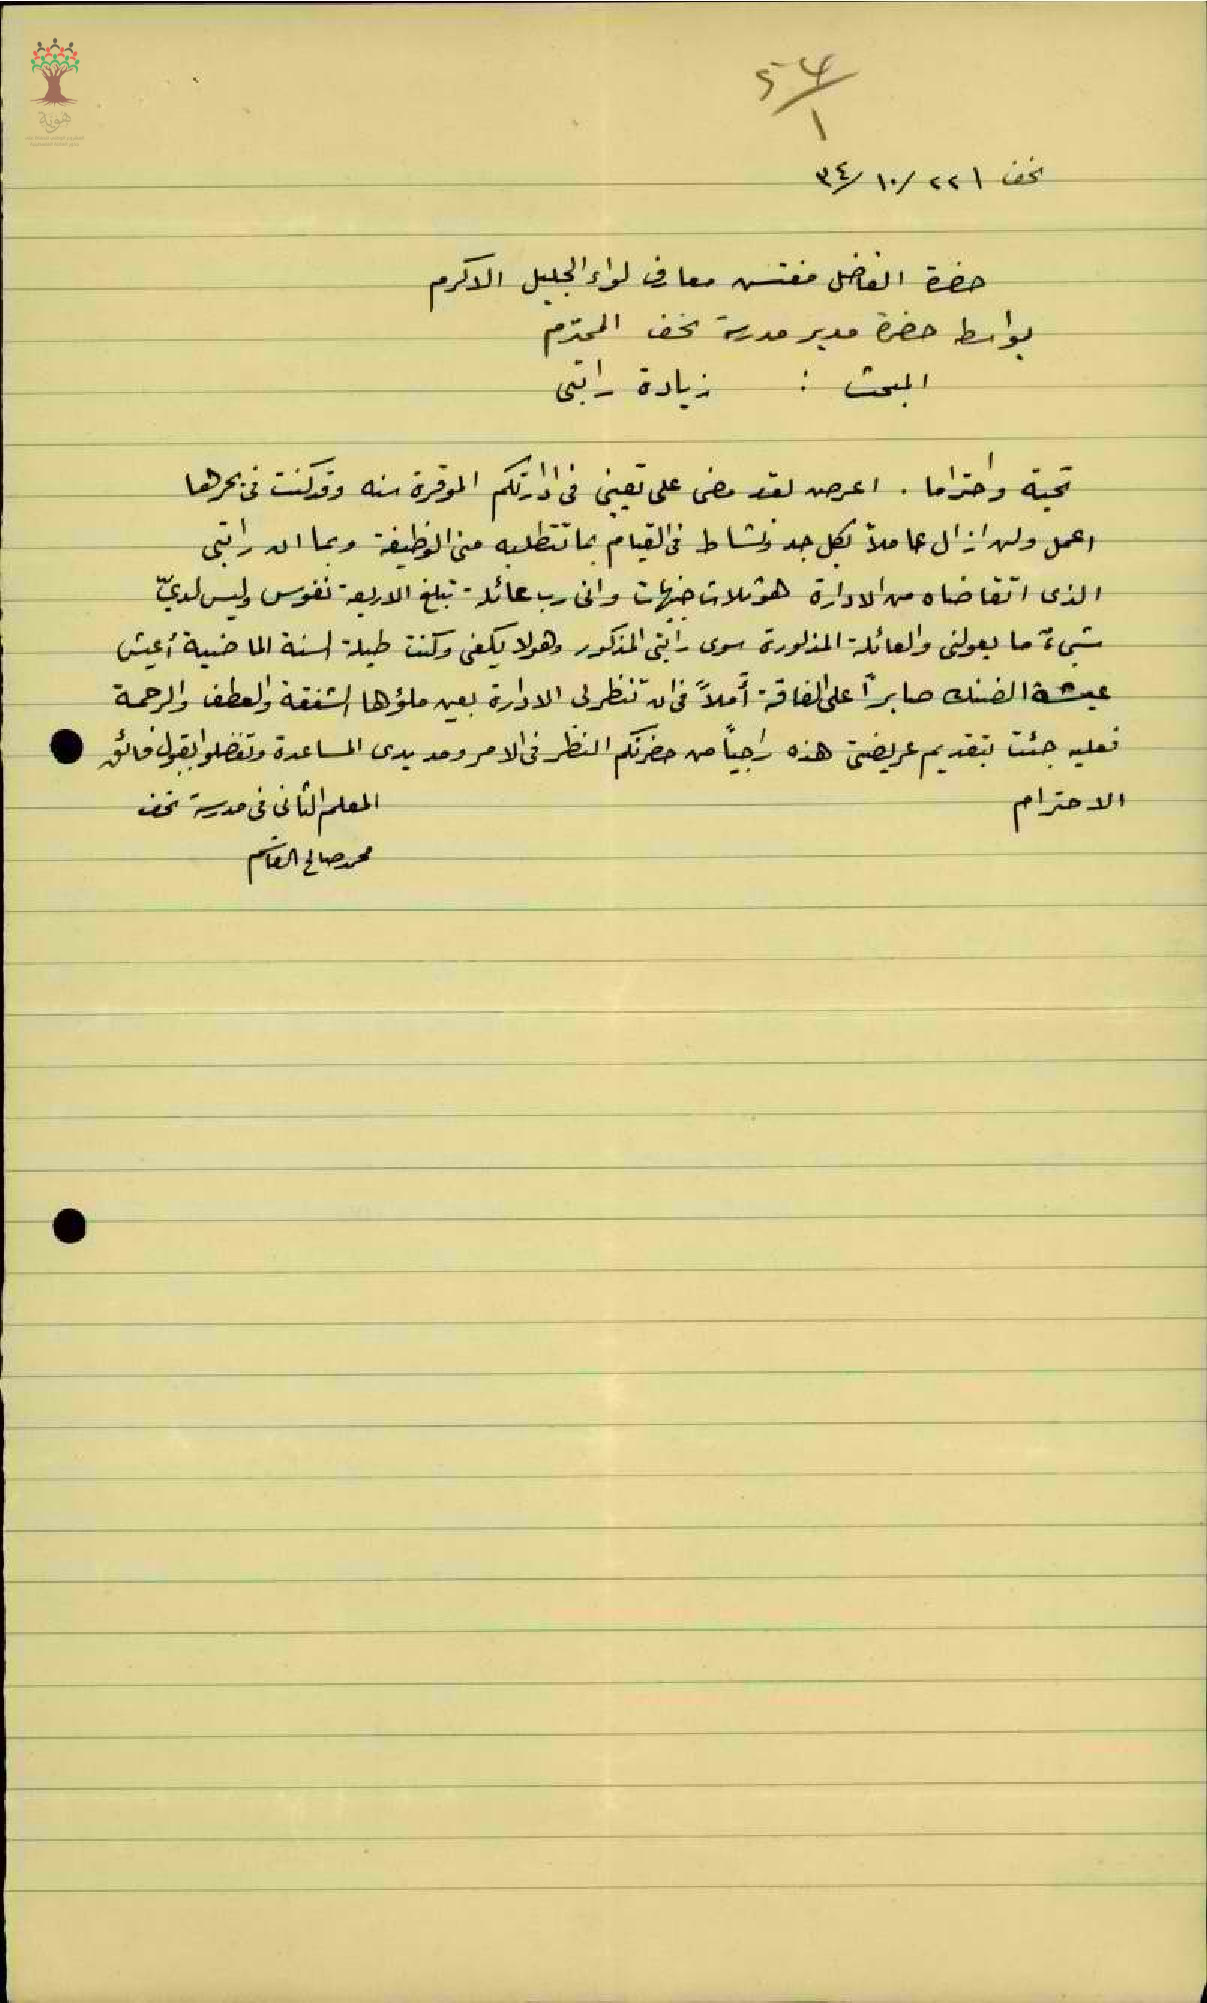 هوية
٥٤
١
نحف ٢٢١ /١٠ /٣٤
حضرة الفاضل مفتش معارف لواء الجليل الاكرم
بواسطة حضرة مدير مدرسة نحف المحترم
المبحث : زيادة راتبي
تحية واحتراما . اعرض لقد مضى على تعيني في ادارتكم الموقرة سنه وقد كنت في بحرها
اعمل ولن ازال عاملاً بكل جد ونشاط في القيام بما تتطلبه مني الوظيفة وبما ان راتبي
الذي اتقاضاه من الادارة هو ثلاث جنيهات واني رب عائلة تبلغ الاربعة نفوس وليس لديّ
شيءٌ ما يعولني والعائلة المذكورة سوى راتبي المذكور وهو لا يكفي وكنت طيلة السنة الماضية أعيش
عيشة الضنك صابراً على الفاقة أملاً في ان تنظر لي الادارة بعين ملؤها الشفقة والعطف والرحمة
فعليه جئت بتقديم عريضتي هذه راجياً من حضرتكم النظر في الامر ومد يدى المساعدة وتفضلوا بقبول فائق
الاحترام
المعلم الثاني في مدرسة نحف
محمد صالح القاسم